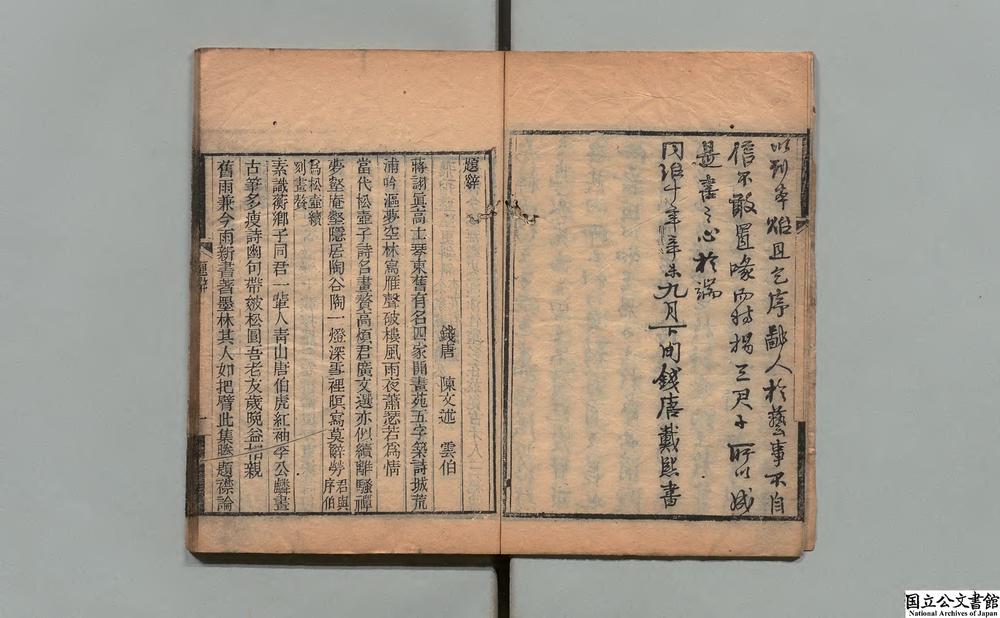 以刻本貽且乞序鄙人於藝事不自
信不敢置喙而特揭三君子所以成
是書之心於端
同治十年辛未九月下旬錢唐戴熙書
題辭
錢唐 陳文述 雲伯
蔣詡眞高士琴東舊有名四家開畫苑五字築詩城荒
浦吟漚夢空林寫雁聲破樓風雨夜蕭瑟若爲情
當代松壺子詩名畫贅高煩君廣文選亦似續離騷禪
夢壑庵壑隱居陶谷陶一燈深雪裡暝寫莫辭勞君與序伯
爲松壺續
刻畫贅
素識蘅鄉子同君一輩人青山唐伯虎紅袖李公麟畫
古筆多瘦詩幽句帶皴松圓吾老友歲晩益相親
舊雨兼今雨新書著墨林其人如把臂此集勝題襟論
題辭
一
国立公文書館
National Archives of Japan